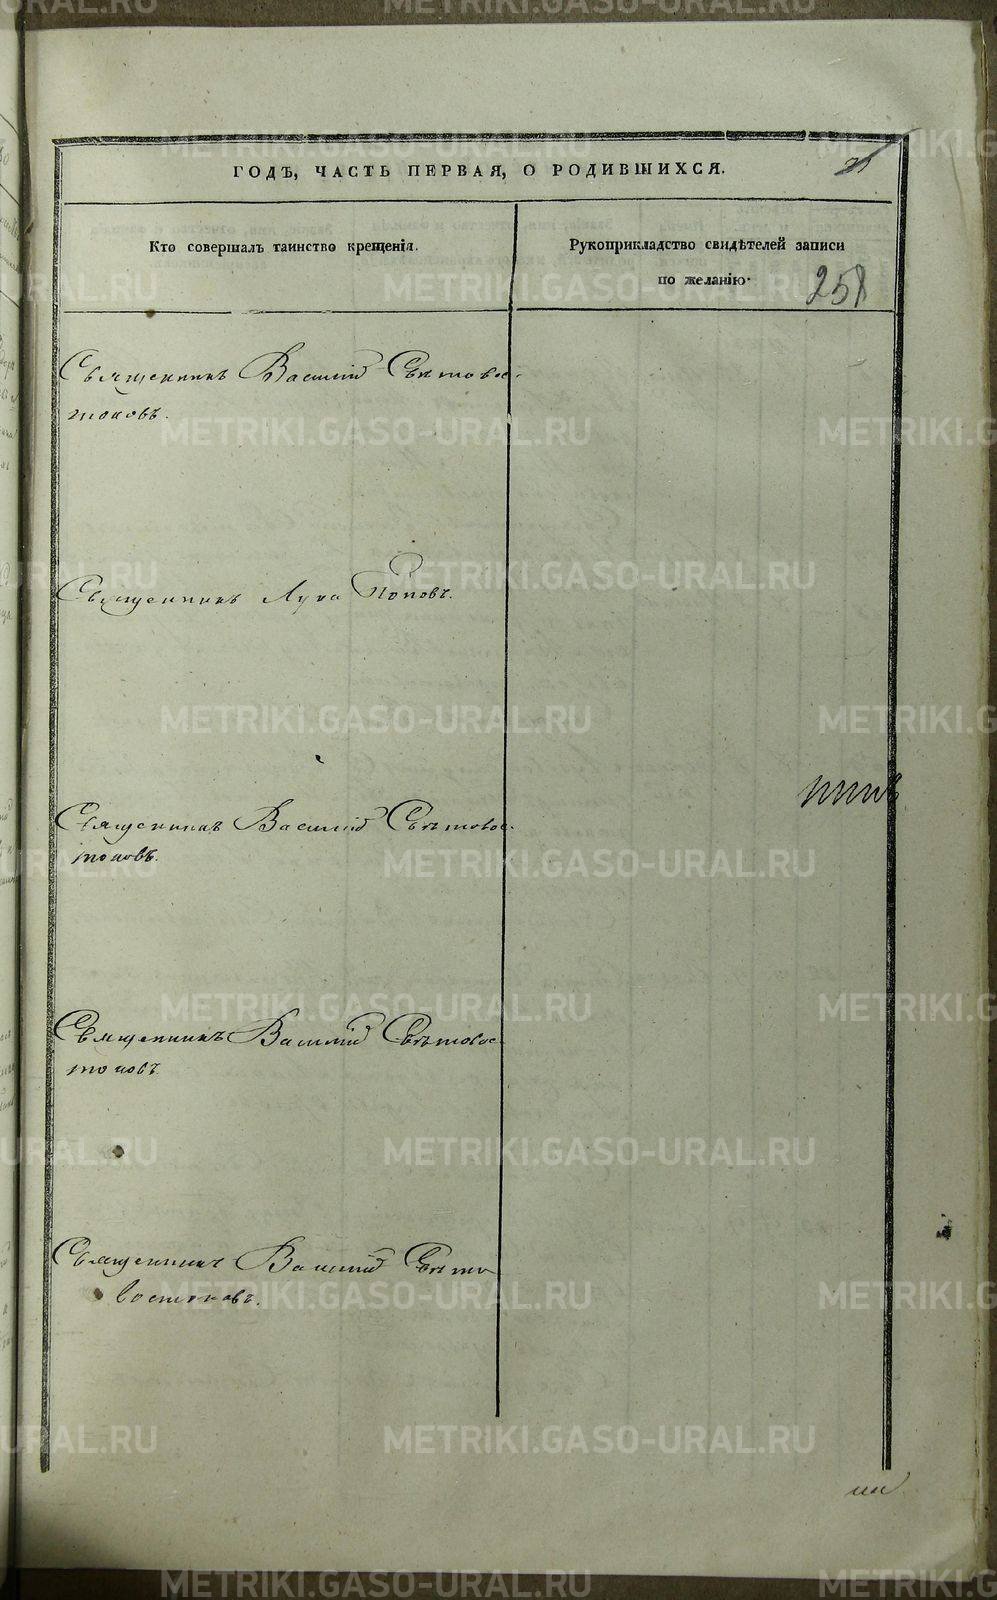 ГОДЪ, ЧАСТЬ ПЕРВАЯ, О РОДИВШИХСЯ.
Кто совершалъ таинство крещенія.
Рукоприкладство свидѣтелей записи
по желанію·
258
Священникъ Василій Свѣтовос-
токовъ.
Священникъ Лука Поповъ.
Священникъ Василій Свѣтовос-
токовъ.
Священникъ Василій Свѣтовос-
токовъ
Священникъ Василій Свѣто
востоковъ.
METRIKI.GASO-URAL.RU